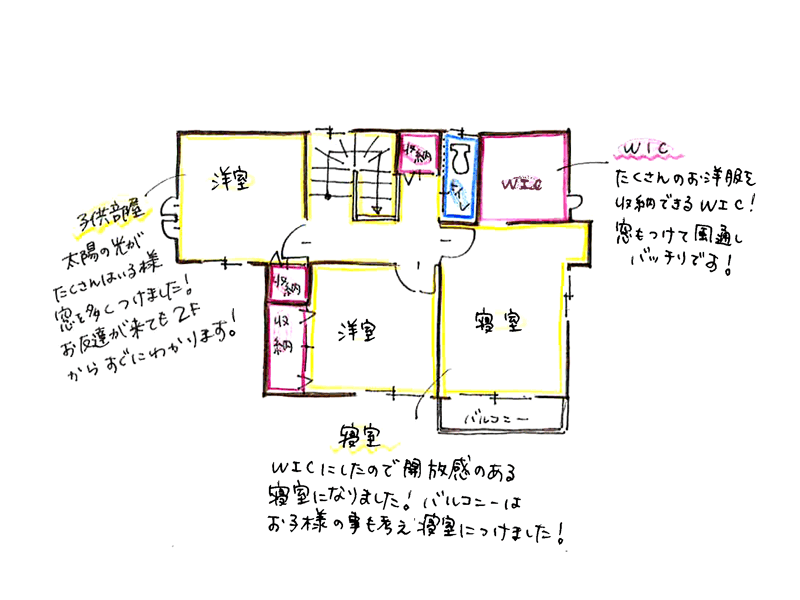 収納
洋室
WIC
トイレ
WIC
たくさんのお洋服を
収納できるWIC!
窓もつけて風通し
バッチリです!
子供部屋
太陽の光が
たくさんはいる様
窓を多くつけました!
お友達が来ても2F
からすぐにわかります!
収納
収納
洋室
寝室
バルコニー
寝室
WICにしたので開放感のある
寝室になりました!バルコニーは
お子様の事も考え寝室につけました!